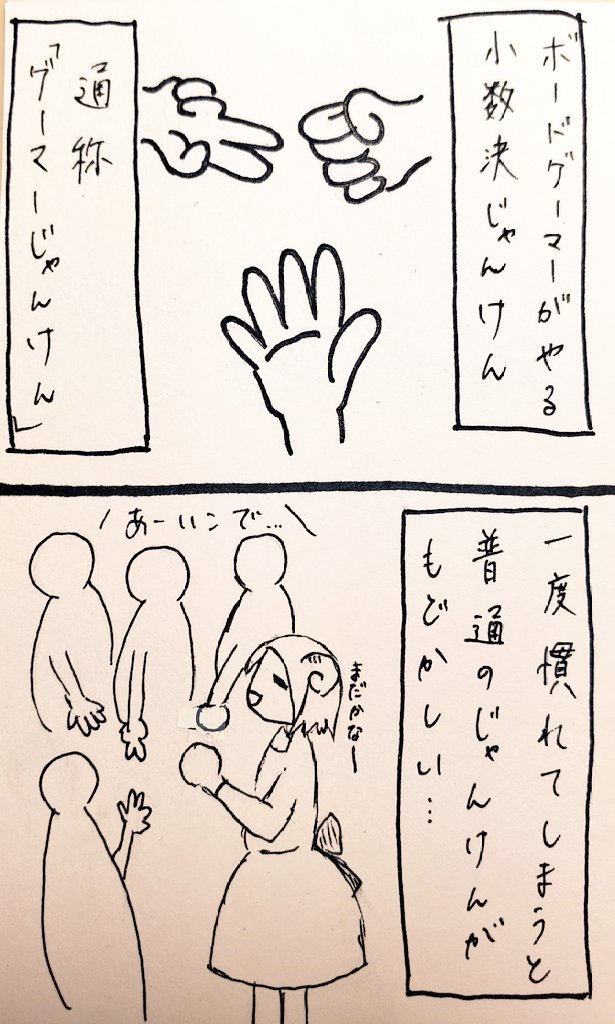 ボードゲーマーがやる
小数決じゃんけん
通称
「ゲーマーじゃんけん」
一度慣れてしまうと
普通のじゃんけんが
もどかしい…
あーいこで…
まだかなー